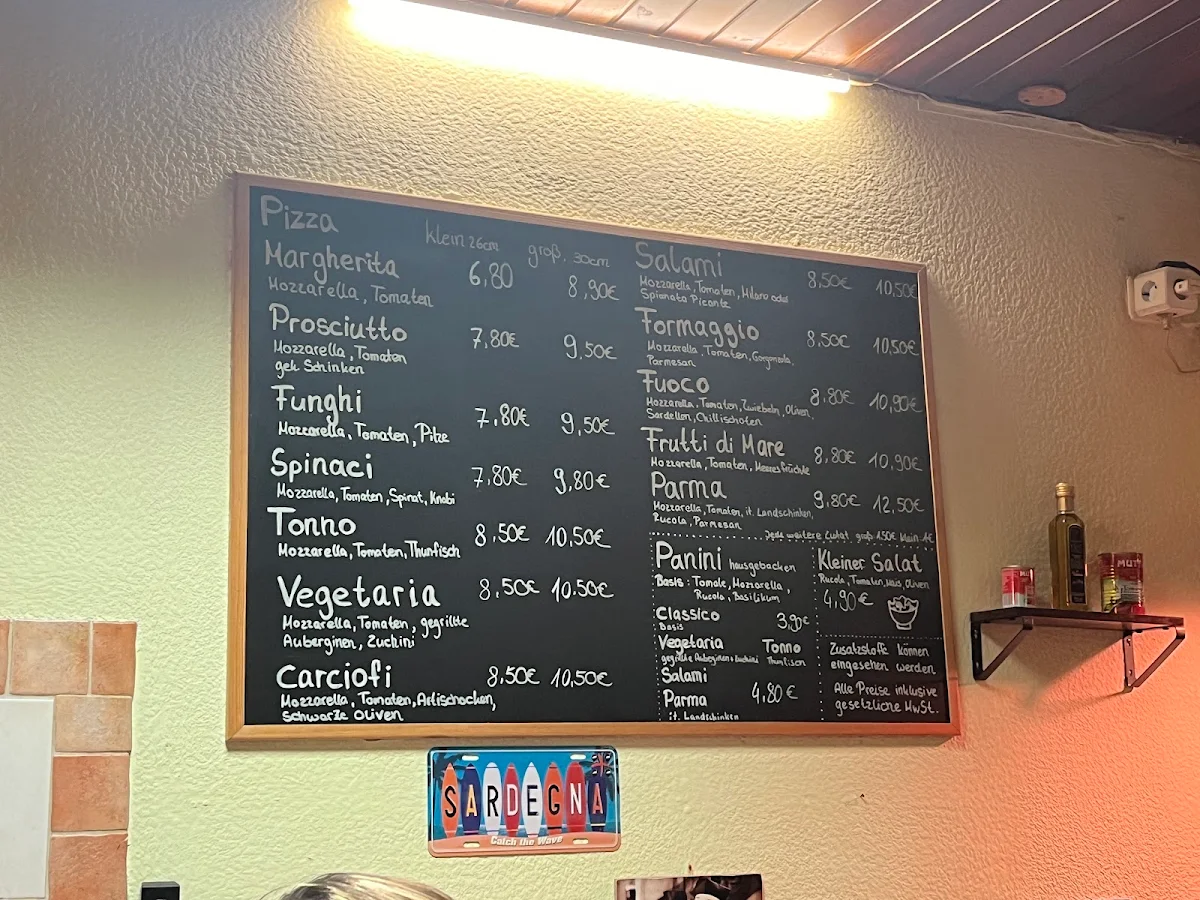 Pizza
klein 26cm groß. 30cm
Margherita 6,80 8,90€
Mozzarella, Tomaten
Prosciutto 7,80€ 9,50€
Mozzarella, Tomaten
gek. Schinken
Funghi 7,80€ 9,50€
Mozzarella, Tomaten, Pilze
Spinaci 7,80€ 9,80€
Mozzarella, Tomaten, Spinat, Knobi
Tonno 8,50€ 10,50€
Mozzarella, Tomaten, Thunfisch
Vegetaria 8,50€ 10,50€
Mozzarella, Tomaten, gegrillte
Auberginen, Zuchini
Carciofi 8,50€ 10,50€
Mozzarella, Tomaten, Artischocken,
Schwarze Oliven
Salami 8,50€ 10,50€
Mozzarella, Tomaten, Milano oder
Spianata Picante
Formaggio 8,50€ 10,50€
Mozzarella, Tomaten, Gorgonzola,
Parmesan
Fuoco 8,80€ 10,90€
Mozzarella, Tomaten, Zwiebeln, Oliven,
Sardellen, Chillischoten
Frutti di Mare 8,80€ 10,90€
Mozzarella, Tomaten, Meeresfrüchte
Parma 9,80€ 12,50€
Mozzarella, Tomaten, it. Landschinken,
Rucola, Parmesan
Jede weitere Zutat groß 1,50€ klein 1€
Panini hausgebacken
Basis: Tomate, Mozzarella,
Rucola, Basilikum
Classico 3,90€
Basis
Vegetaria Tonno
gegrillte Auberginen & Zuchini Thunfisch
Salami
Parma 4,80€
it. Landschinken
Kleiner Salat
Rucola, Tomaten, Mais, Oliven
4,90€
Zusatzstoffe können
eingesehen werden
Alle Preise inklusive
gesetzliche MwSt.
MUTTI
SARDEGNA
Catch the Wave